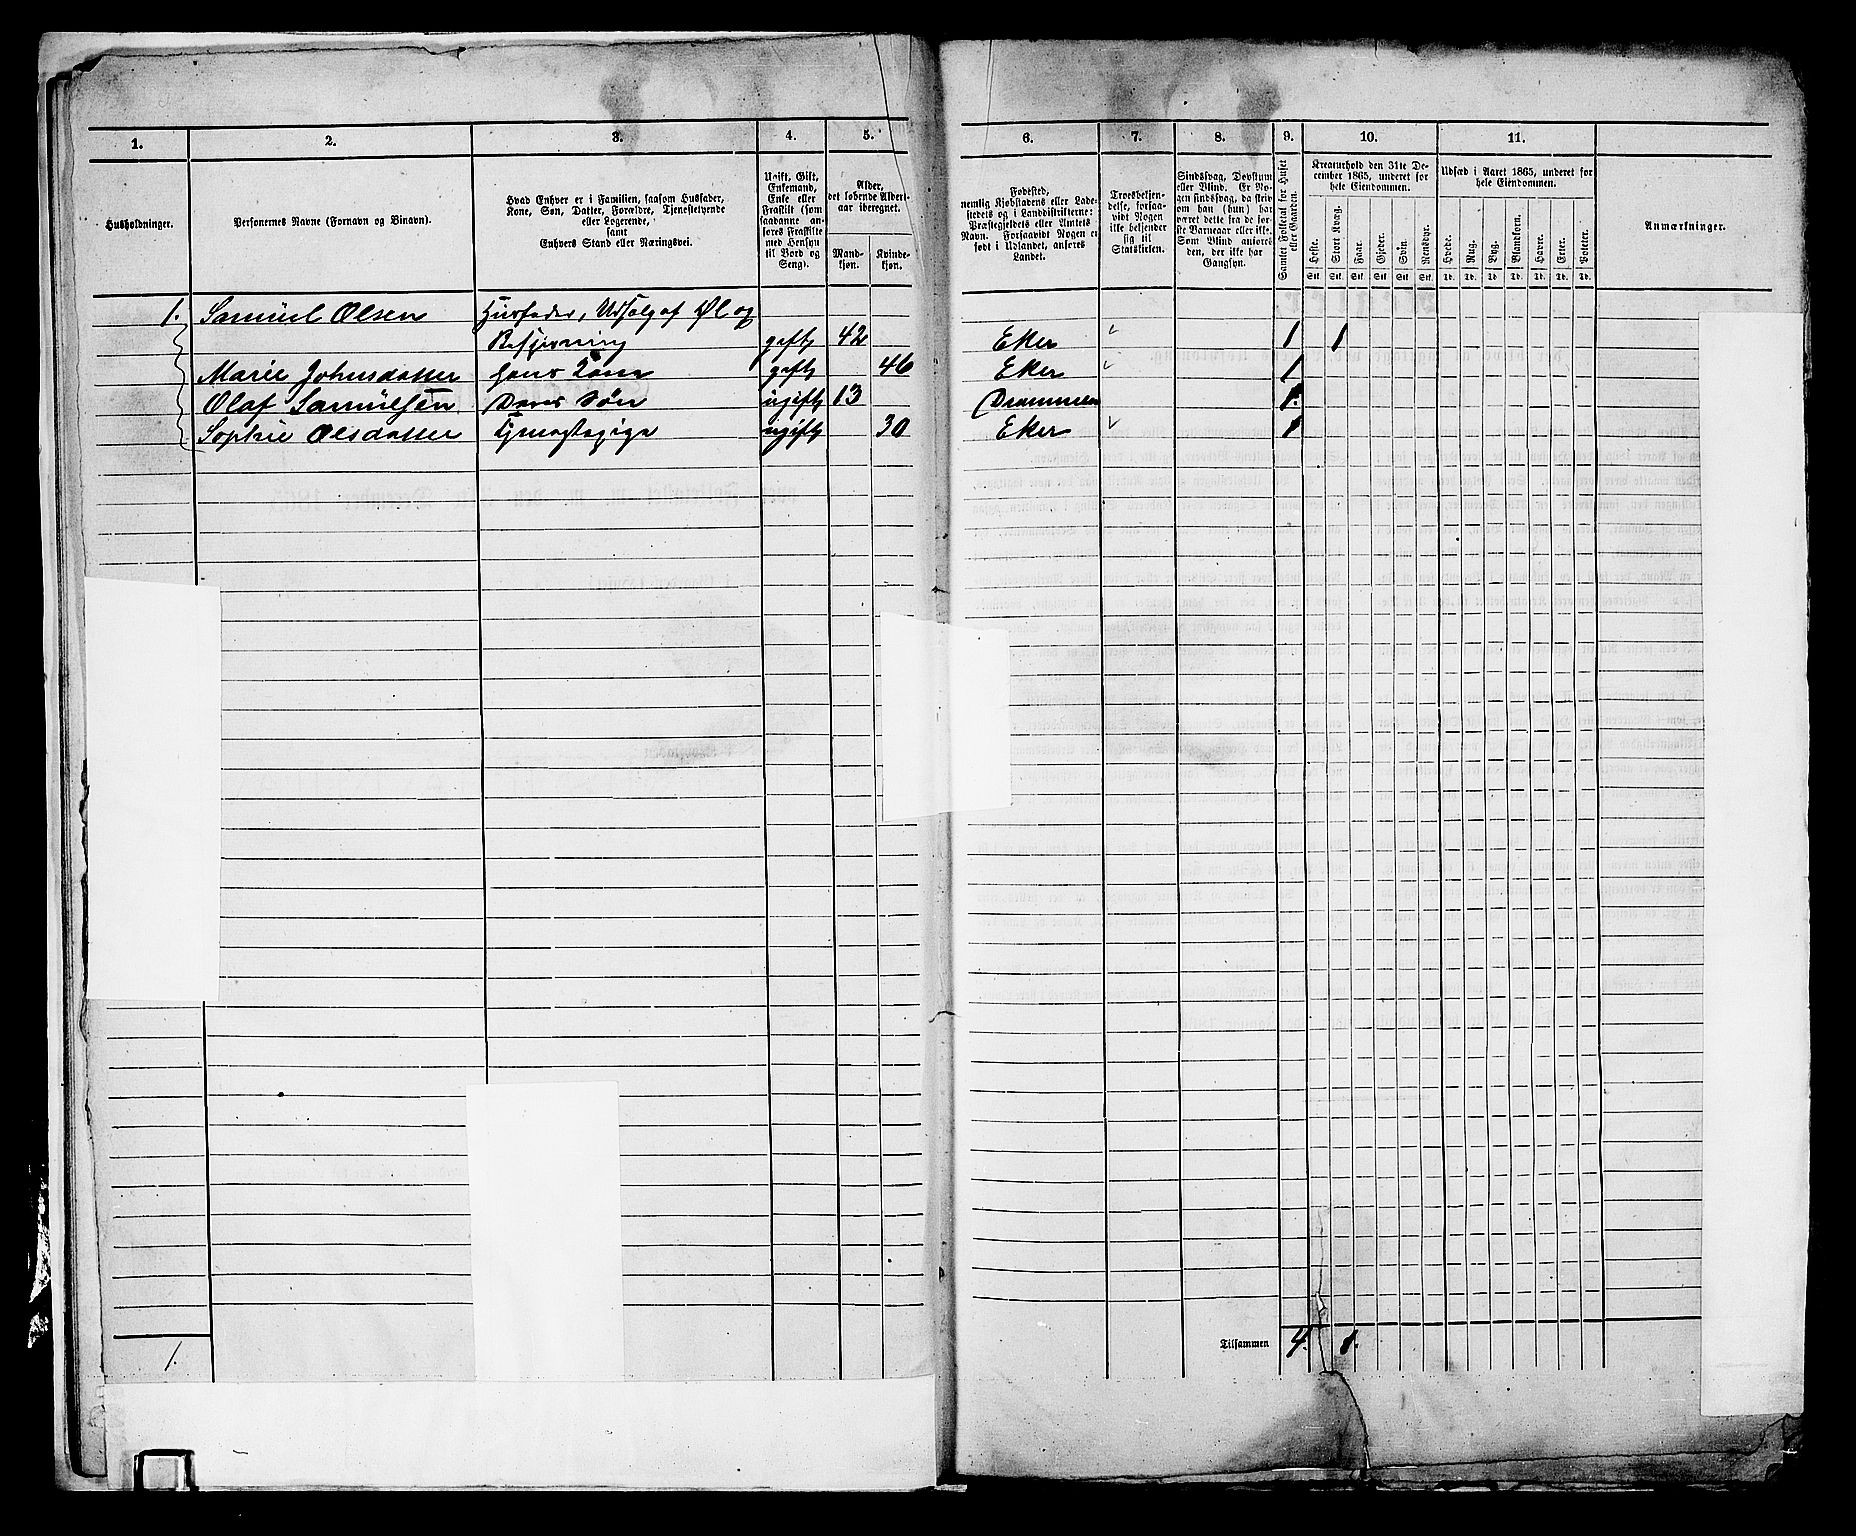 1. 2. 3. 4. 5.
Husholdninger.
Personernes Navne (Fornavn og Binavn).
Hvad Enhver er i Familien, saasom Husfader,
Kone, Søn, Datter, Forældre, Tjenestetyende
eller Logerende,
samt
Enhvers Stand eller Næringsvei.
Ugift, Gift,
Enkemand,
Enke eller
Fraskilt (som
saadanne an-
føres Fraskilte
med Hensyn
til Bord og
Seng).
Alder,
det løbende Alders-
aar iberegnet.
Mand-
kjøn.
Kvinde-
kjøn.
1. Samuel Olsen Huusfader, Udsalg af Øl og
Beværtning gift 42
Marie Johnsdatter hans Kone gift 46
Olaf Samuelsen Deres Søn ugift 13
Sophie Olsdatter Tjenestepige ugift 30
1.
6. 7. 8. 9. 10. 11.
Fødested,
nemlig Kjøbstadens eller Lade-
stedets og i Landdistrikterne:
Præstegjeldets eller Amtets
Navn. Forsaavidt Nogen er
født i Udlandet, anføres
Landet.
Troesbekjen-
delse, forsaa-
vidt Nogen
ikke bekjender
sig til
Statskirken.
Sindssvag, Døvstum
eller Blind. Er No-
gen sindssvag, da skriv
om han (hun) har
været dette fra de før-
ste Barneaar eller ikke.
Som Blind anføres
den, der ikke har
Gangsyn.
Samlet Folketal for Huset
eller Gaarden.
Kreaturhold den 31te De-
cember 1865, underet for
hele Eiendommen.
Heste. Stort Kvæg. Faar. Gjeder. Svin. Rensdyr.
Stk. Stk. Stk. Stk. Stk. Stk.
Udsæd i Aaret 1865, underet for
hele Eiendommen.
Hvede. Rug. Byg. Blandkorn. Havre. Erter. Poteter.
Td. Td. Td. Td. Td. Td. Td.
Anmærkninger.
Eker 1 1
Eker 1
Drammen 1.
Eker 1
Tilsammen 4. 1.